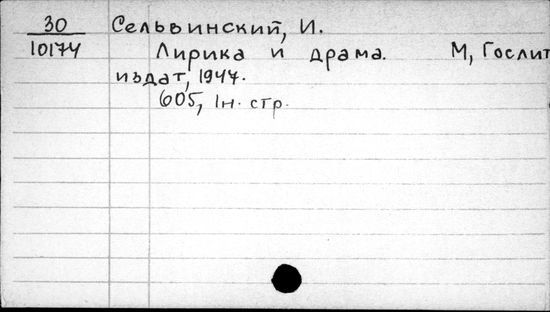 30 Сельвинский, И.
10174 Лирика и драма. М, Гослит
издат, 1947.
605, 1н. стр.